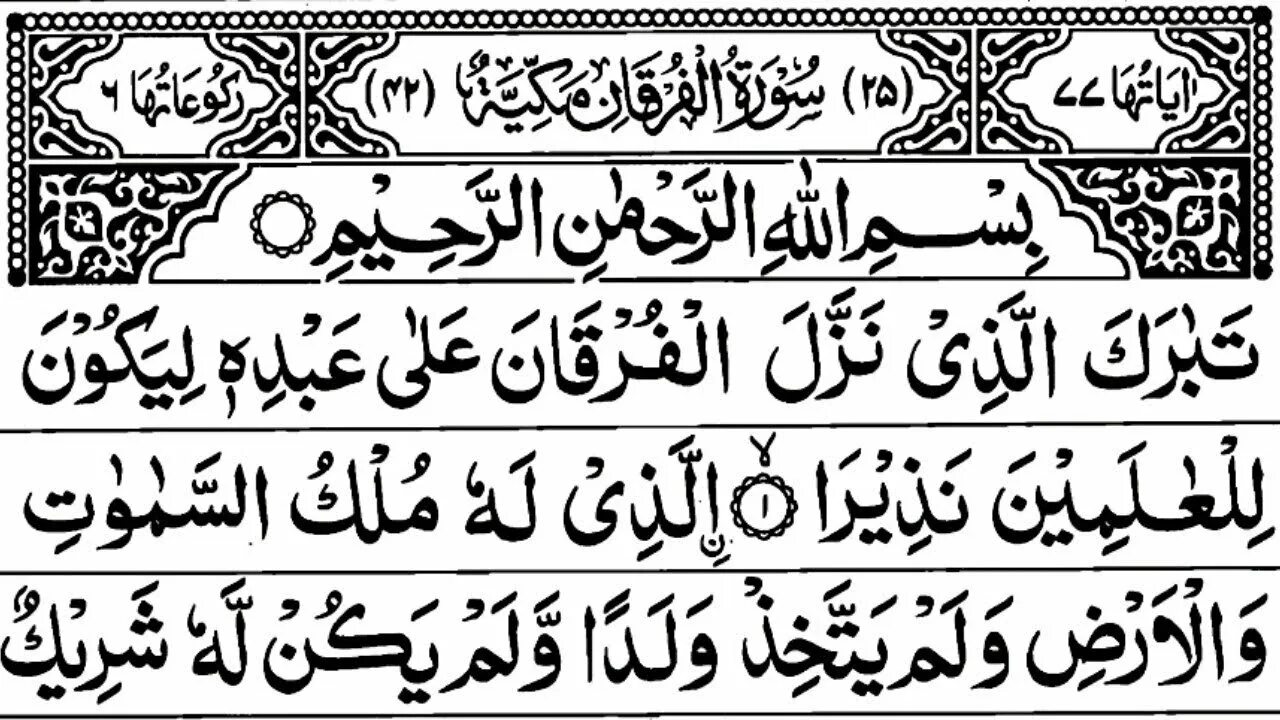 اٰيَاتُهَا ٧٧ (٢٥) سُوْرَةُ الْفُرْقَانِ مَكِّيَّةٌ (٤٢) رُكُوْعَاتُهَا ٦
بِسْمِ اللّٰهِ الرَّحْمٰنِ الرَّحِيْمِ
تَبٰرَكَ الَّذِيْ نَزَّلَ الْفُرْقَانَ عَلٰى عَبْدِهٖ لِيَكُوْنَ
لِلْعٰلَمِيْنَ نَذِيْرَا ۙ‏ ١ اِ۟لَّذِيْ لَهٗ مُلْكُ السَّمٰوٰتِ
وَالْاَرْضِ وَلَمْ يَتَّخِذْ وَلَدًا وَّلَمْ يَكُنْ لَّهٗ شَرِيْكٌ